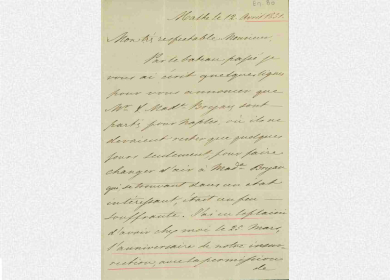 Malte le 12 Avril 1821.
Mon très respectable Monsieur,
Par le bateau passé je
vous ai écrit quelques lignes
pour vous annoncer que
Mr. & Made. Boyan sont
partis pour Naples, où ils ne
devaient rester que quelques
jours seulement pour faire
changer d'air à Made. Boyan
qui se trouvant dans un état
intéressant, était un peu
souffrante. J'ai eu le plaisir
d'avoir chez moi le 25 Mars,
l'anniversaire de notre insur-
rection, avec la permission
de